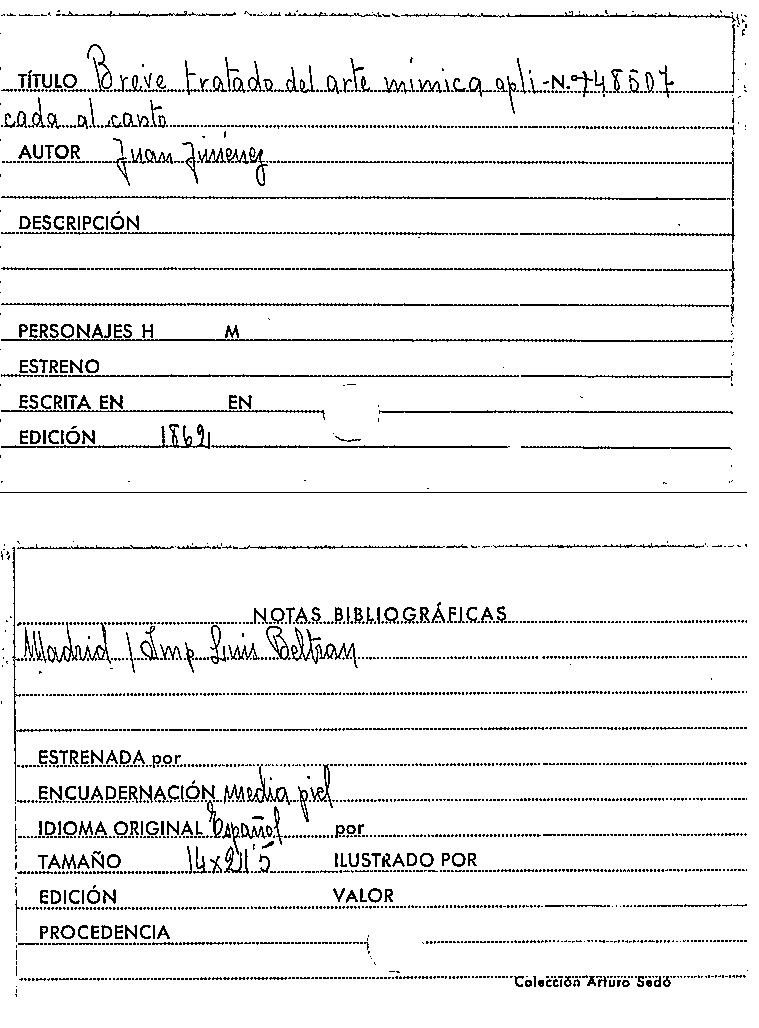 TÍTULO Breve tratado del arte mímica apli-N.º 48507
cada al canto
AUTOR Juan Jiménez
DESCRIPCIÓN
PERSONAJES H M
ESTRENO
ESCRITA EN EN
EDICIÓN 1862
NOTAS BIBLIOGRÁFICAS
Madrid / Imp Luis Beltran
ESTRENADA por
ENCUADERNACIÓN Media piel
IDIOMA ORIGINAL Español por
TAMAÑO 14x21'5 ILUSTRADO POR
EDICIÓN VALOR
PROCEDENCIA
Colección Arturo Sedó